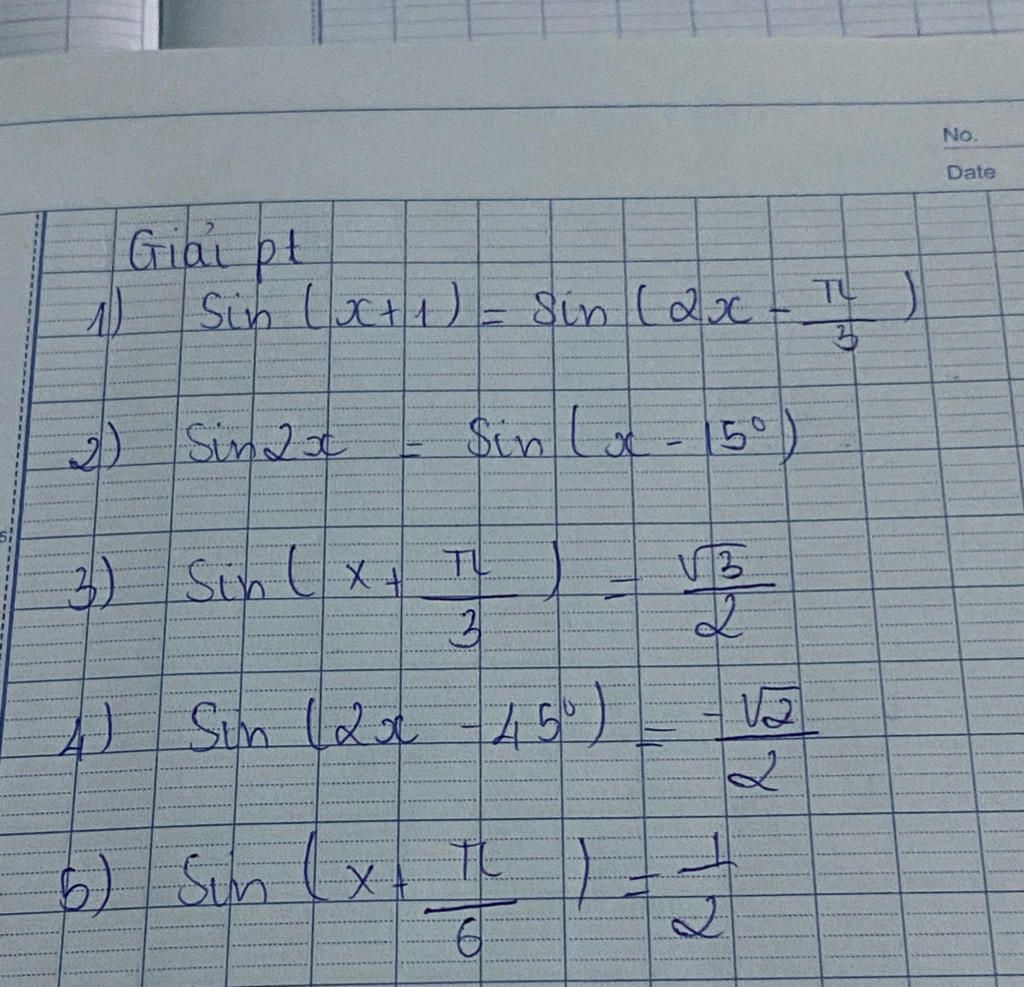 No.
Date
Giải pt
1) Sin (x+1) = Sin (2x - π/3)
2) Sin2x = Sin (x - 15°)
3) Sin (x + π/3) = √3/2
4) Sin (2x - 45°) = -√2/2
5) Sin (x + π/6) = 1/2